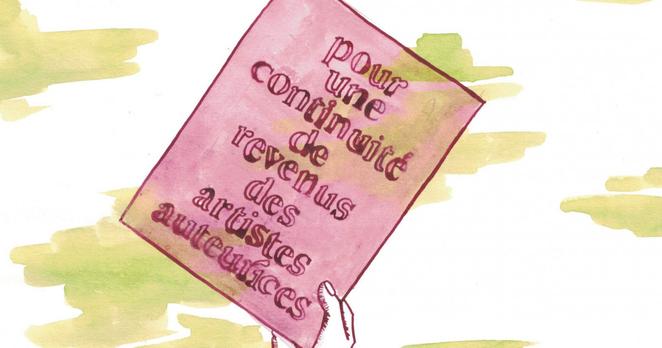 pour
une
continuité
de
revenus
des
artistes
auteurices